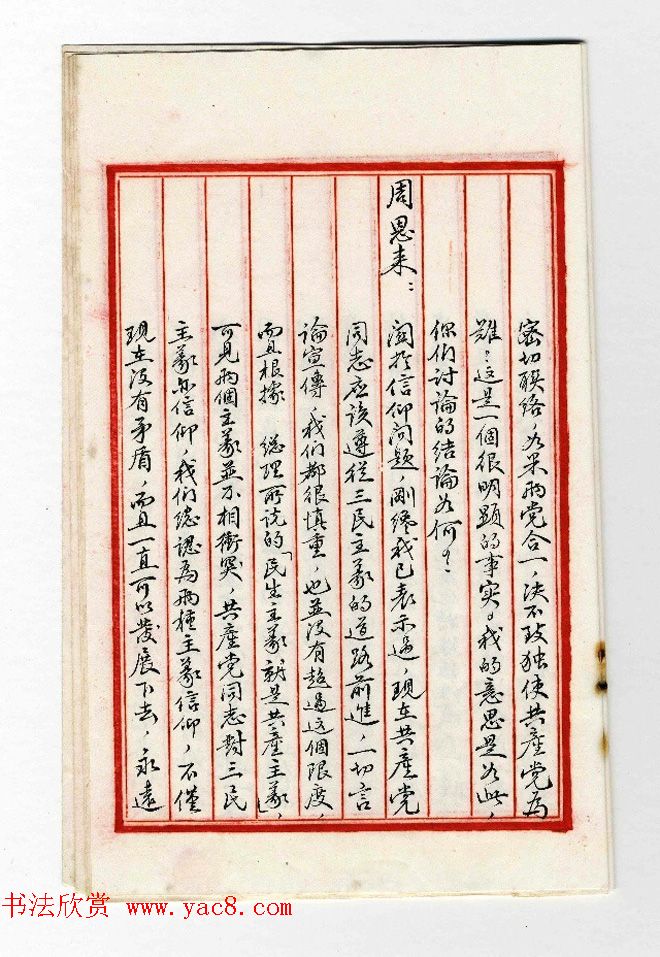 密切联络，如果两党合一，决不致独使共產党為
难？这是一個很明顕的事实。我的意思是如此，
你们讨論的结論如何？
周恩来：
関於信仰问題，剛纔我已表示過，现在共產党
同志应该遵從三民主義的道路前進，一切言
論宣傳，我们都很慎重，也並没有超過这個限度，
而且根據　総理所说的「民生主義就是共產主義」，
可見两個主義並不相衝突，共產党同志對三民
主義亦信仰，我们総認為两種主義信仰，不僅
现在没有矛盾，而且一直可以發展下去，永遠
书法欣赏 www.yac8.com